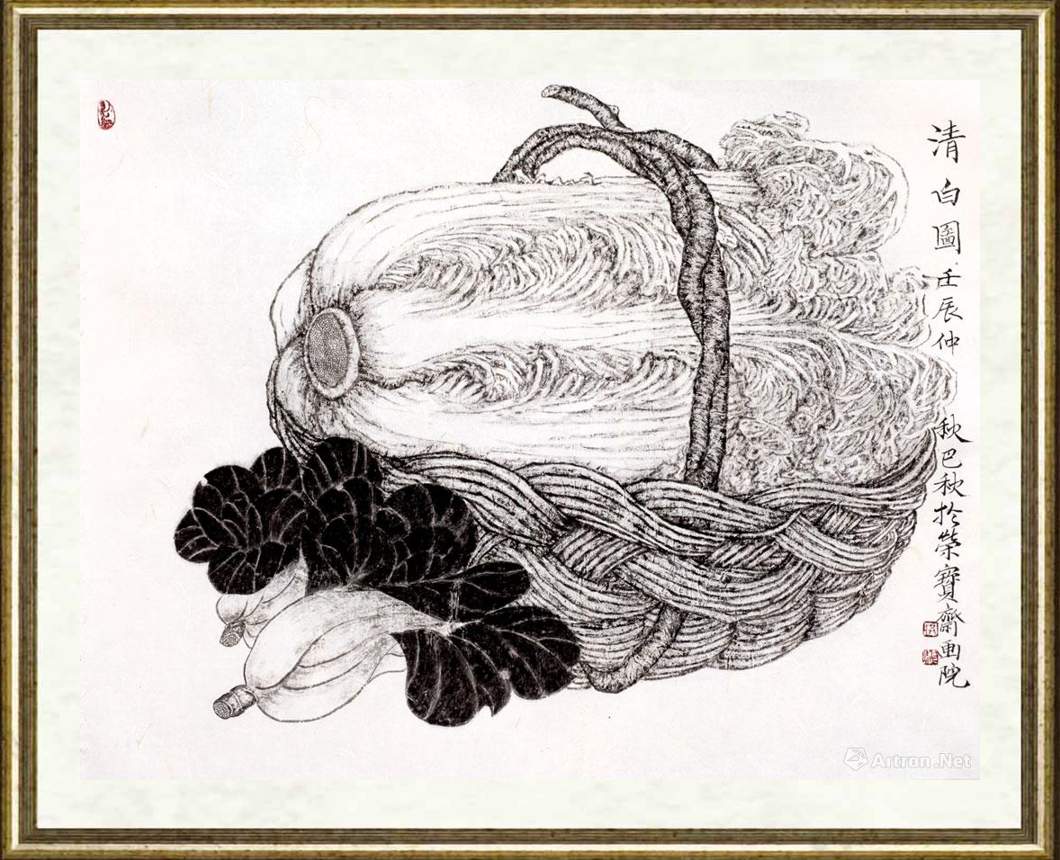 清白圖 壬辰仲秋巴秋於榮寶齋画院
Artron.Net